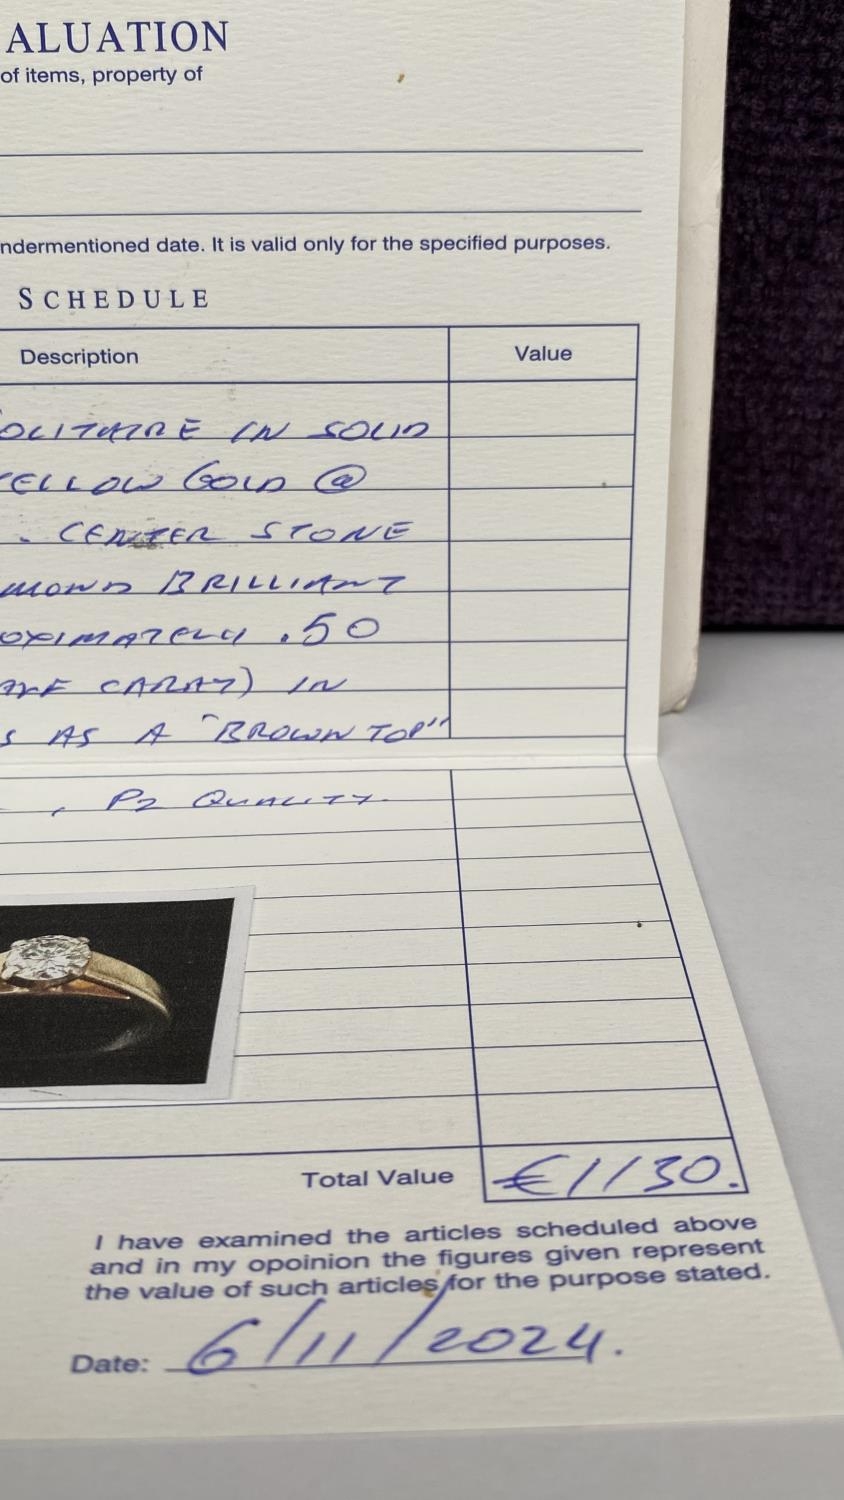 ALUATION
of items, property of
ndermentioned date. It is valid only for the specified purposes.
SCHEDULE
Description Value
OLITAIRE IN SOLID
ELLOW GOLD @
. CENTER STONE
MOND BRILLIANT
OXIMATELY .50
CARAT) IN
S AS A "BROWN TOP"
, P2 QUALITY
Total Value €1130.
I have examined the articles scheduled above
and in my opoinion the figures given represent
the value of such articles for the purpose stated.
Date: 6/11/2024.